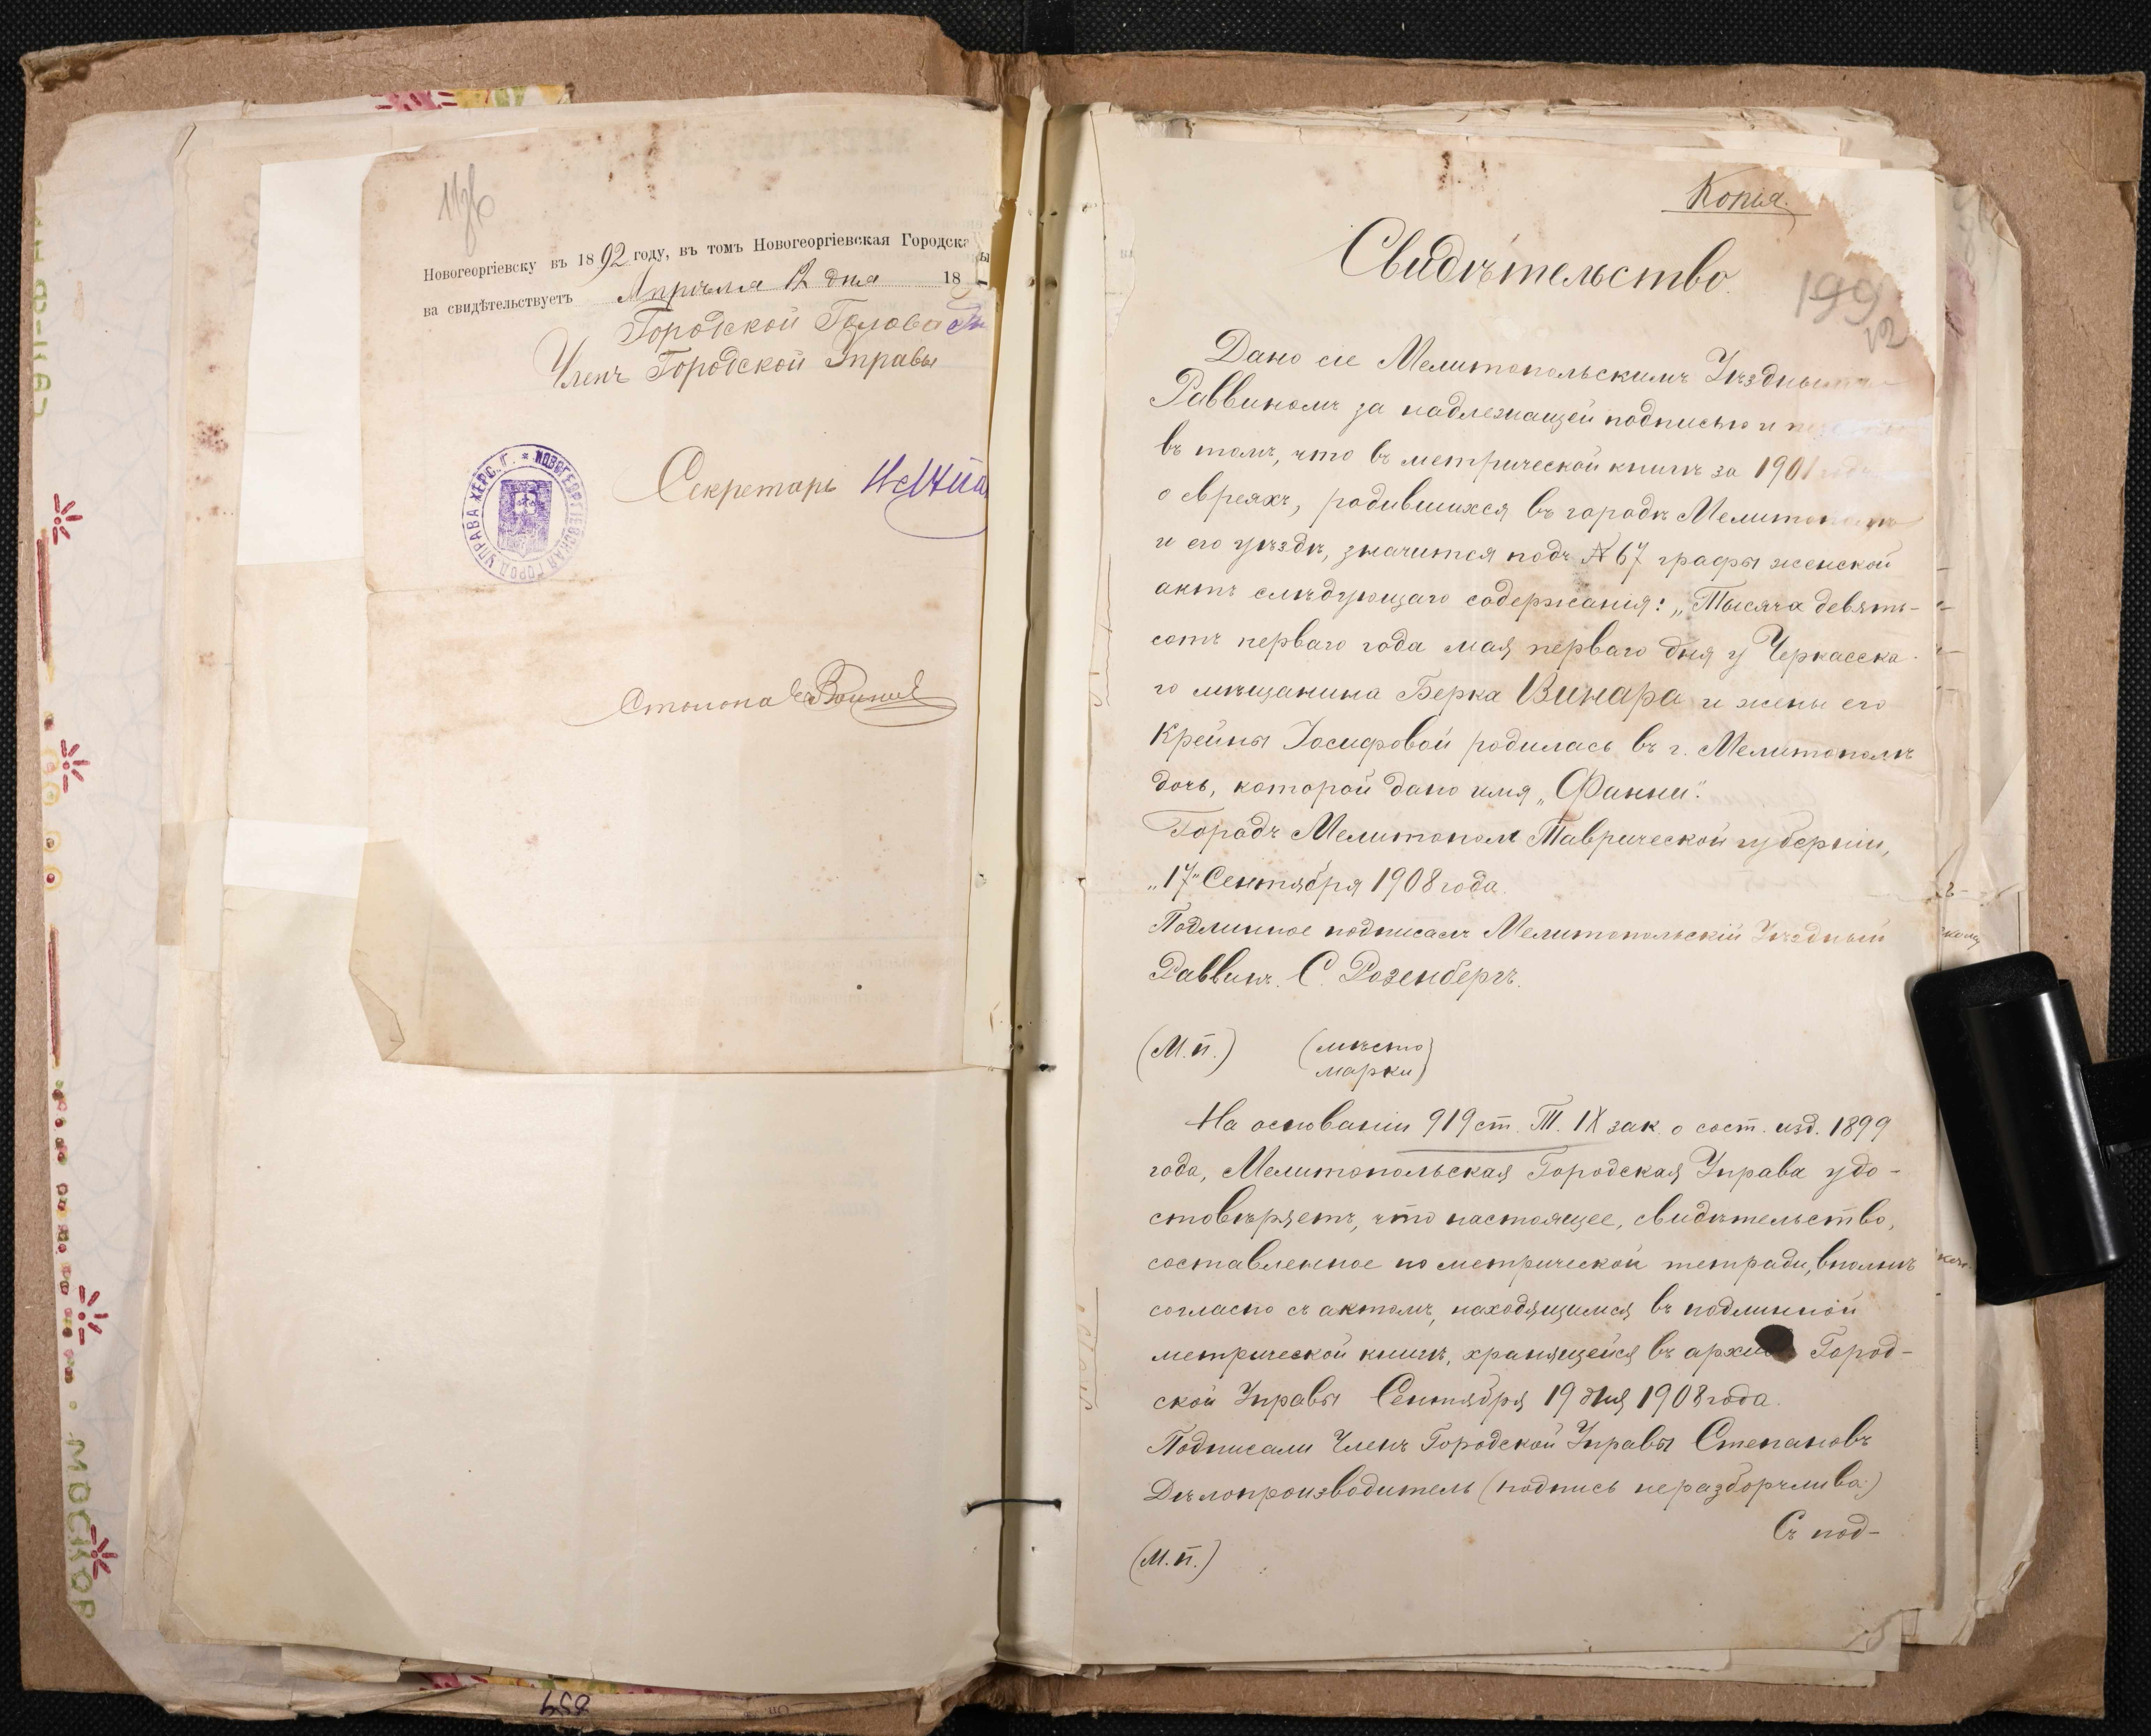 Новогеоргіевску въ 1892 году, въ томъ Новогеоргіевская Городска
ва свидѣтельствуетъ Апрѣля 12 дня 18
Городской Голова
Членъ Городской Управы
Секретарь
НОВОГЕОРГІЕВСКАЯ ГОРОД. УПРАВА ХЕРС. Г.
Столона
Копія.
Свидѣтельство.
199
Дано сіе Мелитопольскимъ Уѣзднымъ
Раввиномъ за надлежащей подписью и
въ томъ, что въ метрической книгѣ за 1901 года
о евреяхъ, родившихся въ городѣ Мелитополѣ
и его уѣздѣ, значится подъ № 67 графы женской
актъ слѣдующаго содержанія: „Тысяча девять-
сотъ перваго года мая перваго дня у Черкасска-
го мѣщанина Берка Винара и жены его
Крейны Іосифовой родилась въ г. Мелитополѣ
дочь, которой дано имя „Фанни".
Городъ Мелитополь Таврической губерніи,
„17" Сентября 1908 года.
Подлинное подписалъ Мелитопольскій Уѣздный
Раввинъ. С. Розенбергъ.
(М.п.) (мѣсто
марки)
На основаніи 919 ст. Т. IX зак. о сост. изд. 1899
года, Мелитопольская Городская Управа удо-
стовѣряетъ, что настоящее, свидѣтельство,
составленное по метрической тетради, вполнѣ
согласно съ актомъ, находящимся въ подлинной
метрической книгѣ, хранящейся въ архи Город-
ской Управы Сентября 19 дня 1908 года.
Подписали Членъ Городской Управы Степановъ
Дѣлопроизводитель (подпись неразборчлива)
Съ под-
(М.п.)
МОСКОВ
859